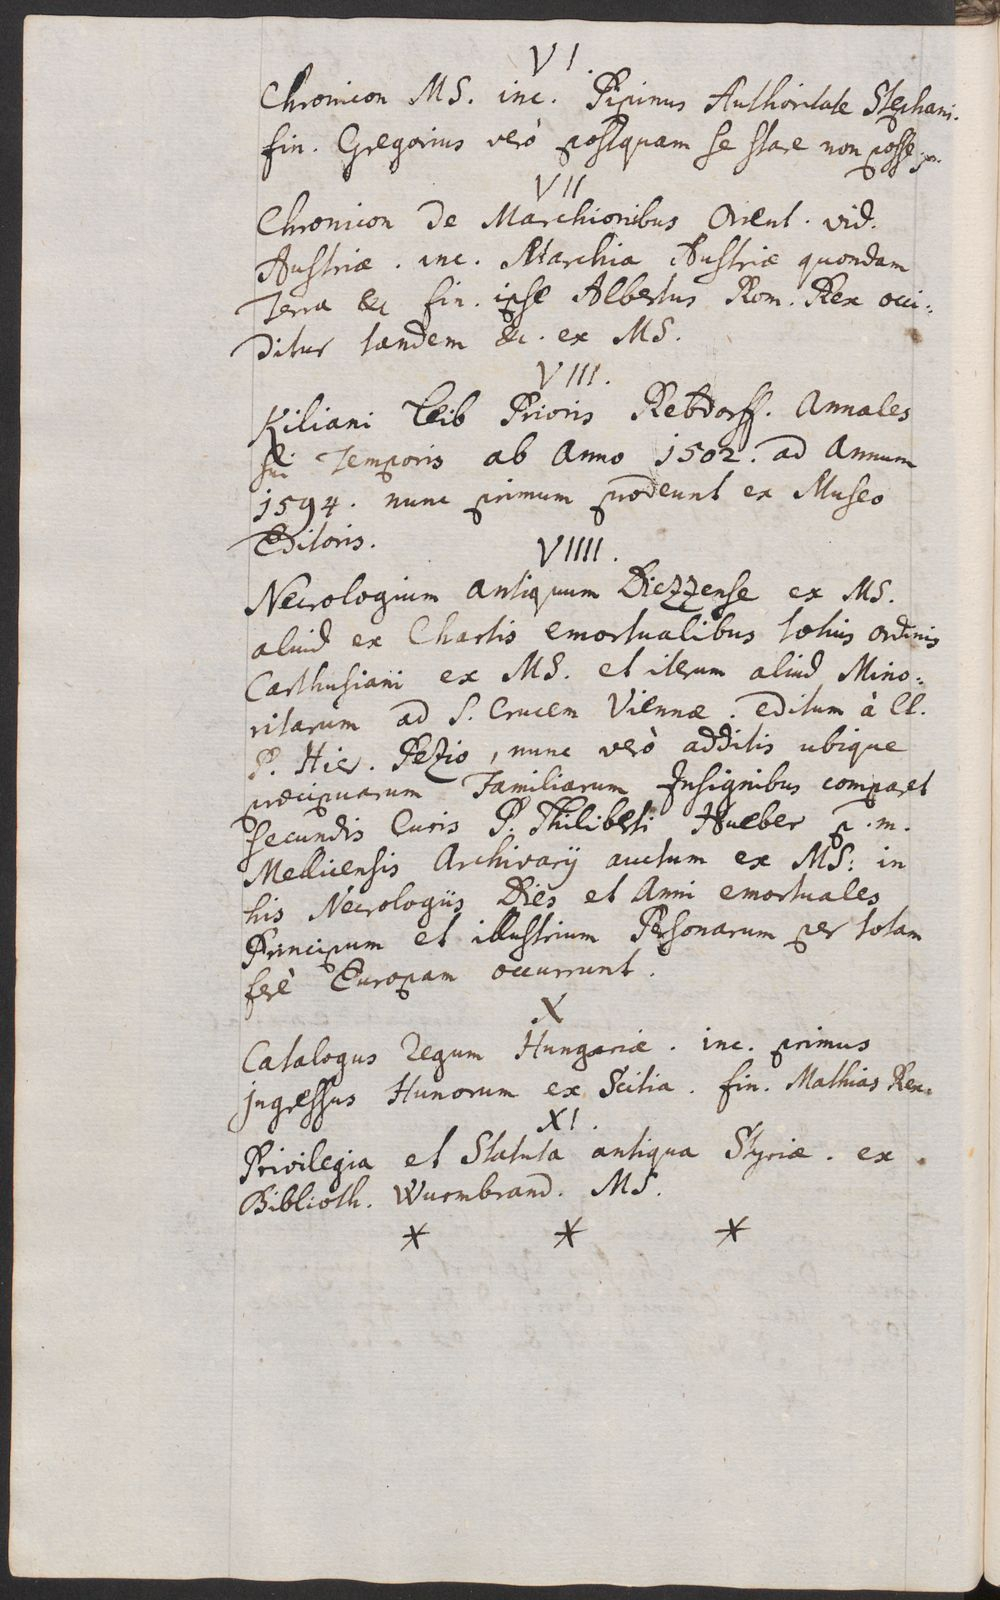 VI.
Chronicon MS. inc. Pipinus Authoritate Stephani.
fin. Gregorius verò postquam se stare non posse
VII
Chronicon de Marchionibus Orient. vid.
Austriæ. inc. Marchia Austriæ quondam
Terra &c fin. ipse Albertus Rom. Rex occi:
ditur tandem &c. ex MS.
VIII.
Kiliani Leib Prioris Rebdorff. Annales
sui Temporis ab Anno 1502. ad Annum
1594. nunc primum prodeunt ex Museo
Editoris.
VIIII.
Necrologium antiquum Diezzense ex MS.
aliud ex Chartis emortualibus totius ordinis
Carthusiani ex MS. et iterum aliud Mino:
ritarum ad S. Crucem Viennæ. editum à Cl.
P. Hier. Pezio, nunc verò additis ubique
præcipuarum Familiarum Insignibus comparet
secundis Curis P. Philiberti Hueber p.m.
Mellicensis Archivarij auctum ex MS: in
his Necrologiis Dies et Anni emortuales
Principum et illustrium Personarum per totam
ferè Europam occurrunt.
X
Catalogus Regum Hungariæ. inc. primus
ingressus Hunorum ex Scitia. fin. Mathias Rex.
XI.
Privilegia et Statuta antiqua Styriæ. ex
Biblioth. Wurmbrand. MS.
* * *